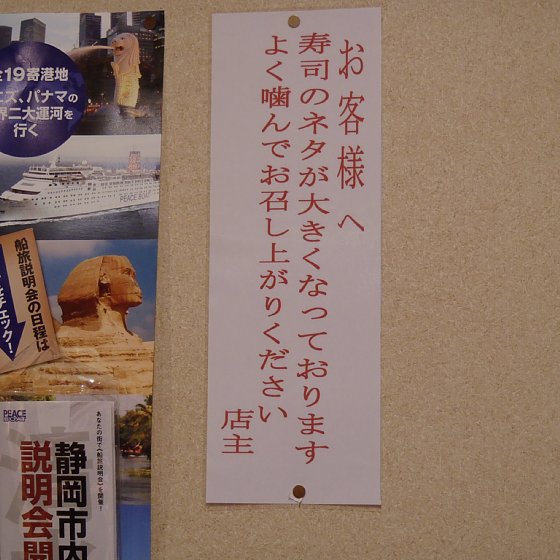 お客様へ
寿司のネタが大きくなっております
よく噛んでお召し上がりください
店主
19寄港地
エス、パナマの
界二大運河を
行く
PEACE B
船旅説明会の日程は
チェック!
PEACE
あなたの街で《船旅説明会》を開催!
静岡市内
説明会開